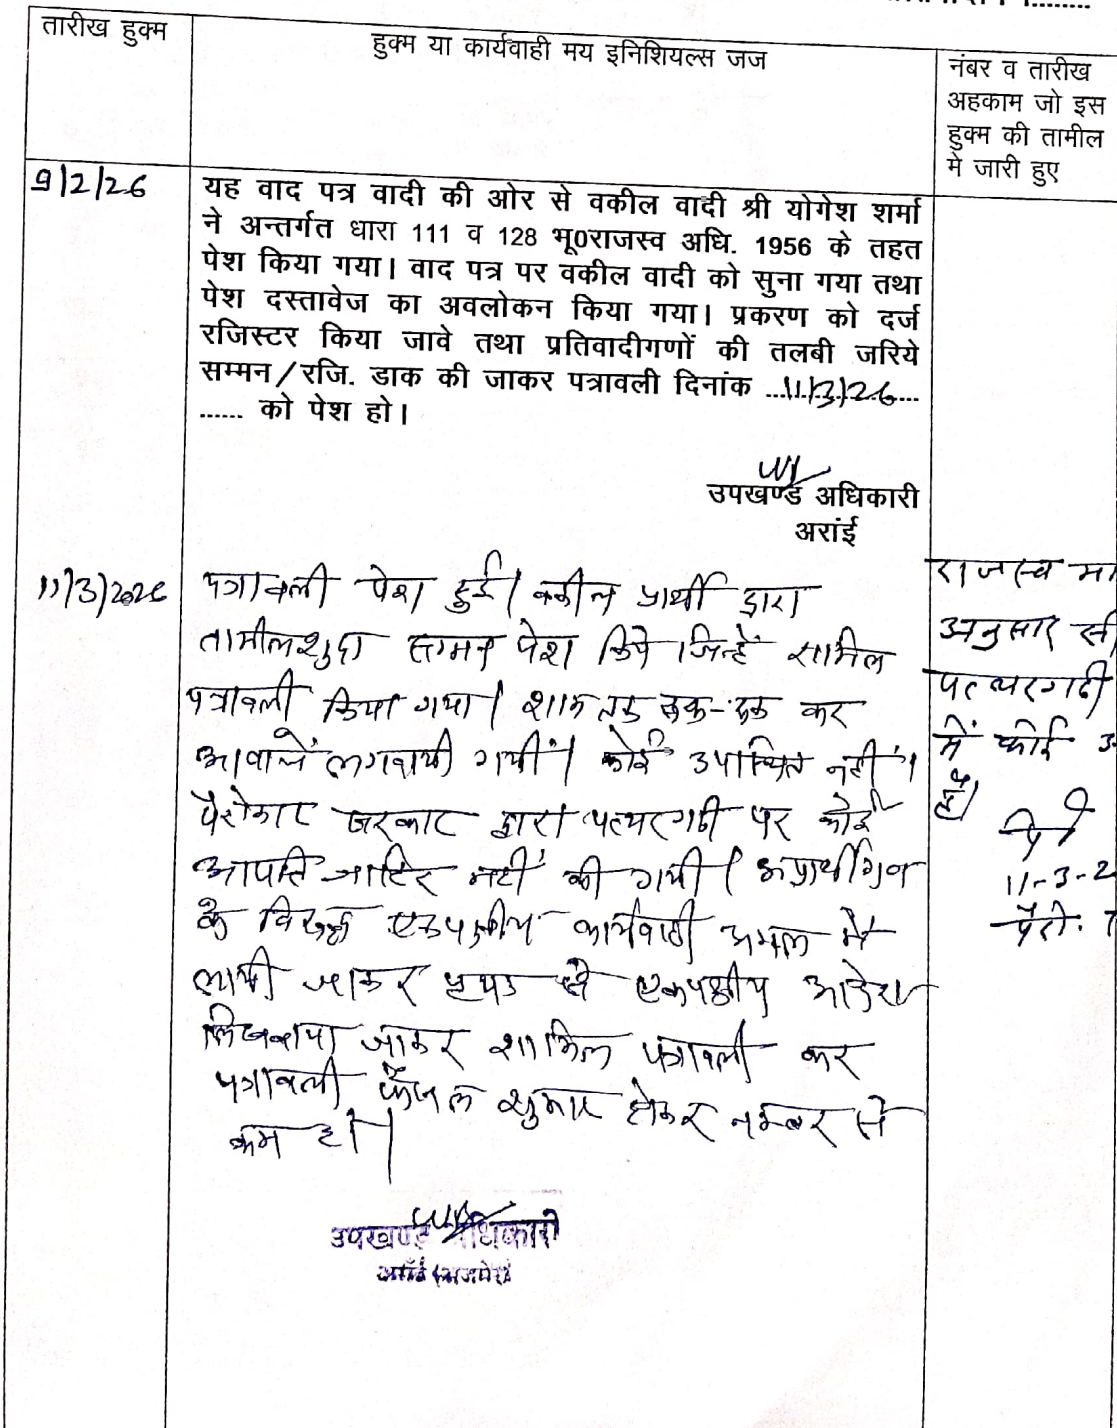 तारीख हुक्म
हुक्म या कार्यवाही मय इनिशियल्स जज
नंबर व तारीख
अहकाम जो इस
हुक्म की तामील
मे जारी हुए
9/2/26
यह वाद पत्र वादी की ओर से वकील वादी श्री योगेश शर्मा
ने अन्तर्गत धारा 111 व 128 भू0राजस्व अधि. 1956 के तहत
पेश किया गया। वाद पत्र पर वकील वादी को सुना गया तथा
पेश दस्तावेज का अवलोकन किया गया। प्रकरण को दर्ज
रजिस्टर किया जावे तथा प्रतिवादीगणों की तलबी जरिये
सम्मन/रजि. डाक की जाकर पत्रावली दिनांक ...11/3/26...
...... को पेश हो।
उपखण्ड अधिकारी
अरांई
11/3/2026
पत्रावली पेश हुई। वकील प्रार्थी द्वारा
तामीलशुदा सम्मन पेश किये जिन्हें सामिल
पत्रावली किया गया। शाम तक रूक-रूक कर
आवाजें लगवायी गयीं। कोई उपस्थित नहीं।
पैरोकार सरकार द्वारा पत्थरगढी पर कोई
आपति जाहिर नहीं की गयी। अप्रार्थीगण
के विरूद्ध एकपक्षीय कार्यवाही अमल में
लायी जाकर पृथक से एकपक्षीय आदेश
लिखवाया जाकर शामिल पत्रावली कर
पत्रावली फैसल शुमार होकर नम्बर से
कम हो।
राजस्व
अनुसार
पत्थरगढी
में कोई
है।
11-3-2
पैरो.
उपखण्ड अधिकारी
अरांई (अजमेर)